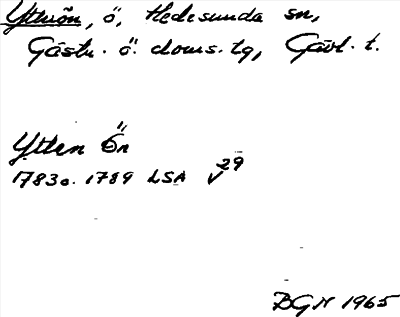 Ytterön, ö, Hedesunda sn,
Gästr. ö. doms. tg, Gävl. t.
Ytlen Ön
1783 o. 1789 LSA V 29
BGN 1965